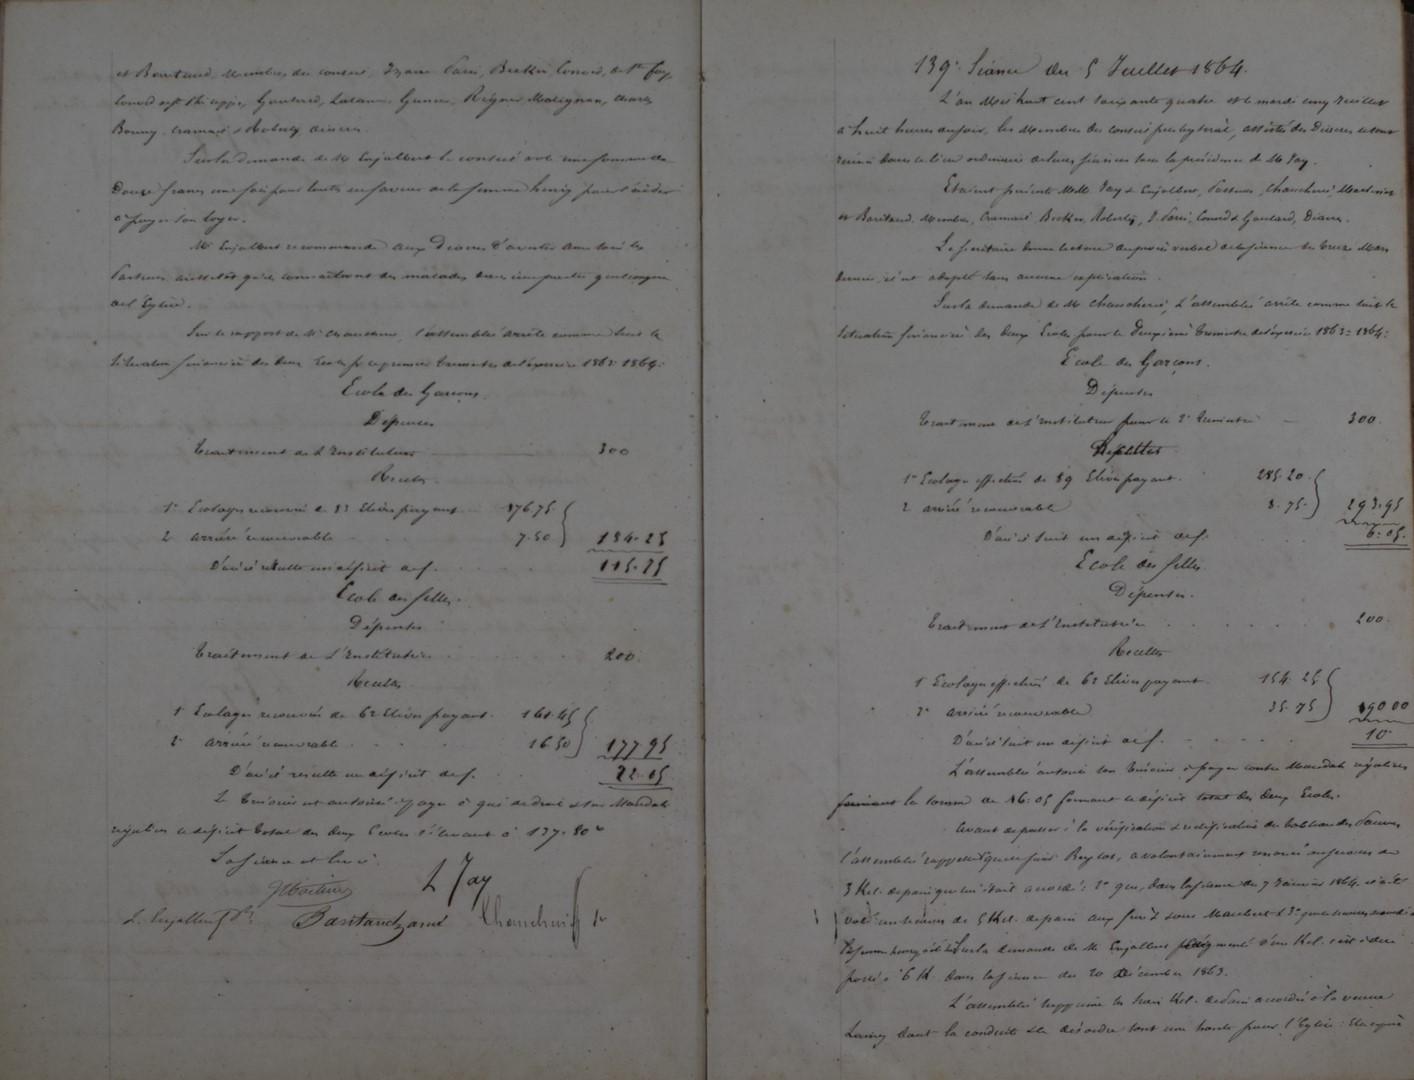 et Baritaud, Membres du conseil, Isaac Paris, Becker, Conord, de Ste foy,
Conord Philippe, Goulard, Lalanne, Reignier Malignan, Charles
Bonny, Cramaix & Roberty diacres.
Sur la demande de Mr Enjalbert le conseil vote une somme de
Douze francs une fois pour toutes en faveur de la femme henry pour l'aider
à payer son loyer.
Mr Enjalbert recommande aux Diacres d'avertir Messieurs les
Pasteurs aussitôt qu'ils connaîtront des malades dans une partie quelconque
de l'Eglise.
Sur le rapport de Mr l'assemblée arrête comme suit la
situation financière des deux Ecoles pr le premier trimestre de l'exercice 1863-1864:
Ecole des Garçons.
Dépenses
Traitement de l'Instituteur 300
Recettes.
1o Ecolages recouvrés de Elèves payant 176.75
2 arriéré recouvrable 7.50 184.25
D'où résulte un déficit de f. 115.75
Ecole des filles.
Dépenses
Traitement de l'Institutrice 200.
Recettes.
1o Ecolages recouvrés de 62 Elèves payant. 161.45
2o arriéré recouvrable 16.50 177.95
D'où résulte un déficit de f. 22.05
Le Trésorier est autorisé à payer à qui de droit & sur Mandats
réguliers le déficit total des deux Ecoles s'élevant à 137.80
La séance est levée.
L Jay
L. Enjalbert Pr Baritaud
139e Séance du 5 Juillet 1864.
L'an Mil huit cent soixante quatre et le mardi cinq Juillet
à huit heures du soir, les Membres du conseil presbytéral, assistés des Diacres se sont
réunis dans le lieu ordinaire de leurs séances sous la présidence de Mr Jay.
Etaient présents MM Jay & Enjalbert, Pasteurs,
et Baritaud, Membres, Cramaix, Becker, Roberty, J. Paris, Conord & Goulard, Diacres.
Le secrétaire donne lecture du procès verbal de la séance du treize Mars
dernier, il est adopté sans aucune explication.
Sur la demande de Mr l'assemblée arrête comme suit la
situation financière des deux Ecoles pour le deuxième trimestre de l'exercice 1863-1864:
Ecole des Garçons.
Dépenses
Traitement de l'Instituteur pour le 2e trimestre 300.
Recettes
1o Ecolages effectués de 89 Elèves payant. 285.20
2 arriéré recouvrable 8.75 293.95
D'où suit un déficit de f. 6.05.
Ecole des filles.
Dépenses.
Traitement de l'Institutrice 200.
Recettes
1o Ecolages effectués de 62 Elèves payant. 154.25
2o arriéré recouvrable 35.75 190.00
D'où suit un déficit de f. 10
L'assemblée autorise son Trésorier à payer contre Mandats réguliers
la somme de 16.05 formant le déficit total des deux Ecoles.
Avant de passer à la vérification & rectification du tableau des Pauvres
l'assemblée rappelle que a volontairement renoncé au secours de
3 Kil. de pain qui lui était accordé: 2o que, dans la séance du 7 Janvier 1864, il a été
voté un secours de 5 Kil. de pain aux &
Sur la demande de Mr Enjalbert d'un Kil. c'est à dire
porté à 6 K. dans la séance du 20 décembre 1863.
L'assemblée supprime les trois Kil. de pain accordés à la veuve
dont la conduite & le désordre sont une honte pour l'Eglise: